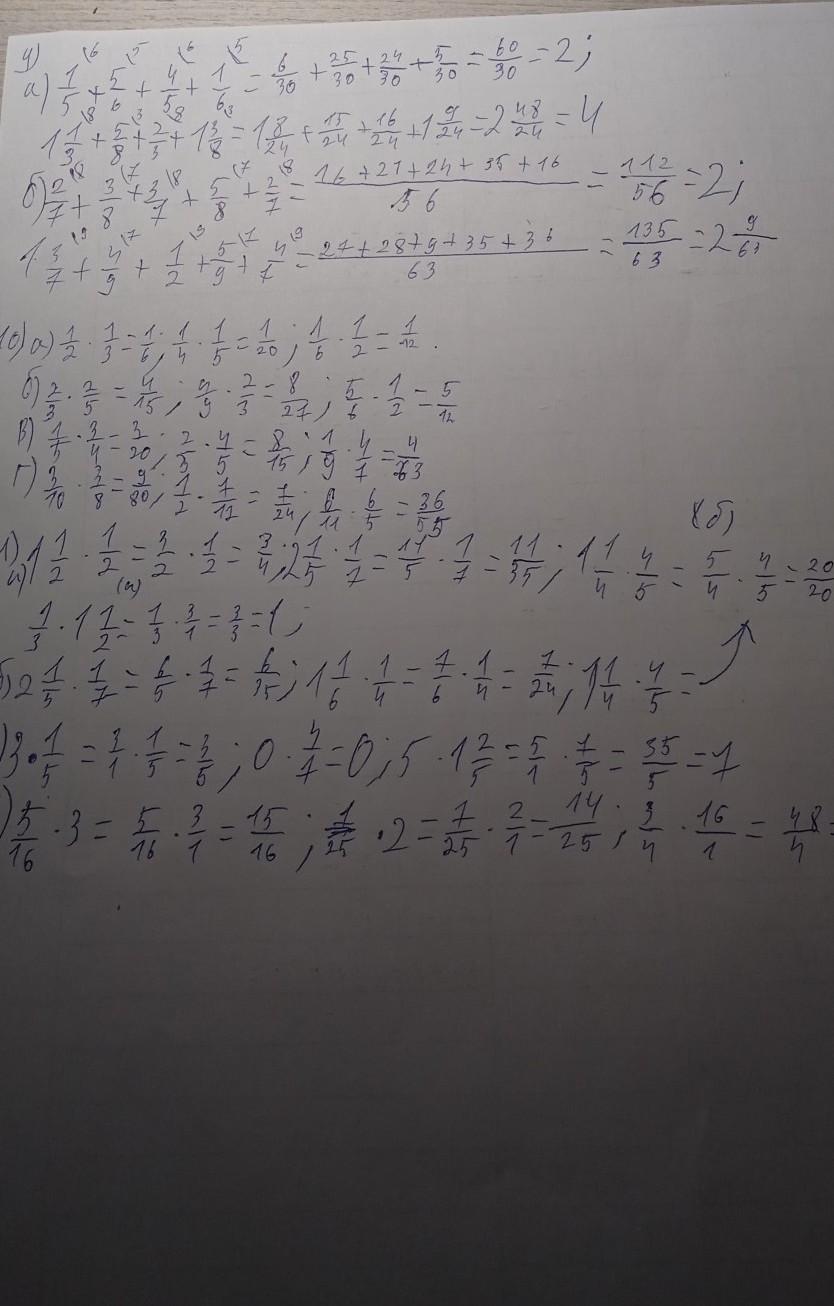 9)
а) 1/5 + 5/6 + 4/5 + 1/6 = 6/30 + 25/30 + 24/30 + 5/30 = 60/30 = 2;
1 1/3 + 5/8 + 2/3 + 1 3/8 = 1 8/24 + 15/24 + 16/24 + 1 9/24 = 2 48/24 = 4
б) 2/7 + 3/8 + 3/7 + 5/8 + 2/7 = (16 + 21 + 24 + 35 + 16)/56 = 112/56 = 2;
3/7 + 4/9 + 1/2 + 5/9 + 4/7 = (27 + 28 + 9 + 35 + 36)/63 = 135/63 = 2 9/63
10) а) 1/2 · 1/3 = 1/6; 1/4 · 1/5 = 1/20; 1/6 · 1/2 = 1/12.
б) 2/3 · 2/5 = 4/15; 4/9 · 2/3 = 8/27; 5/6 · 1/2 = 5/12
в) 1/5 · 3/4 = 3/20; 2/3 · 4/5 = 8/15; 1/9 · 4/7 = 4/63
г) 3/10 · 3/8 = 9/80; 1/2 · 7/12 = 7/24; 6/11 · 6/5 = 36/55
(б)
а) 1 1/2 · 1/2 = 3/2 · 1/2 = 3/4; 2 1/5 · 1/7 = 11/5 · 1/7 = 11/35; 1 1/4 · 4/5 = 5/4 · 4/5 = 20/20
(а)
1/3 · 1 1/2 = 1/3 · 3/1 = 3/3 = 1;
2 1/5 · 1/7 = 6/5 · 1/7 = 6/35; 1 1/6 · 1/4 = 7/6 · 1/4 = 7/24; 1 1/4 · 4/5 =
) 3 · 1/5 = 3/1 · 1/5 = 3/5; 0 · 4/7 = 0; 5 · 1 2/5 = 5/1 · 7/5 = 35/5 = 7
) 5/16 · 3 = 5/16 · 3/1 = 15/16; 7/25 · 2 = 7/25 · 2/1 = 14/25; 3/4 · 16/1 = 48/4 =